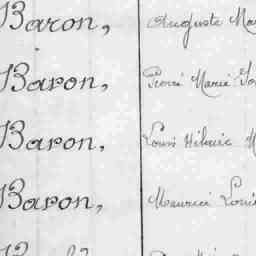 Baron, Auguste
Baron, Pierre Marie
Baron, Louis Hilaire
Baron, Maurice Louis